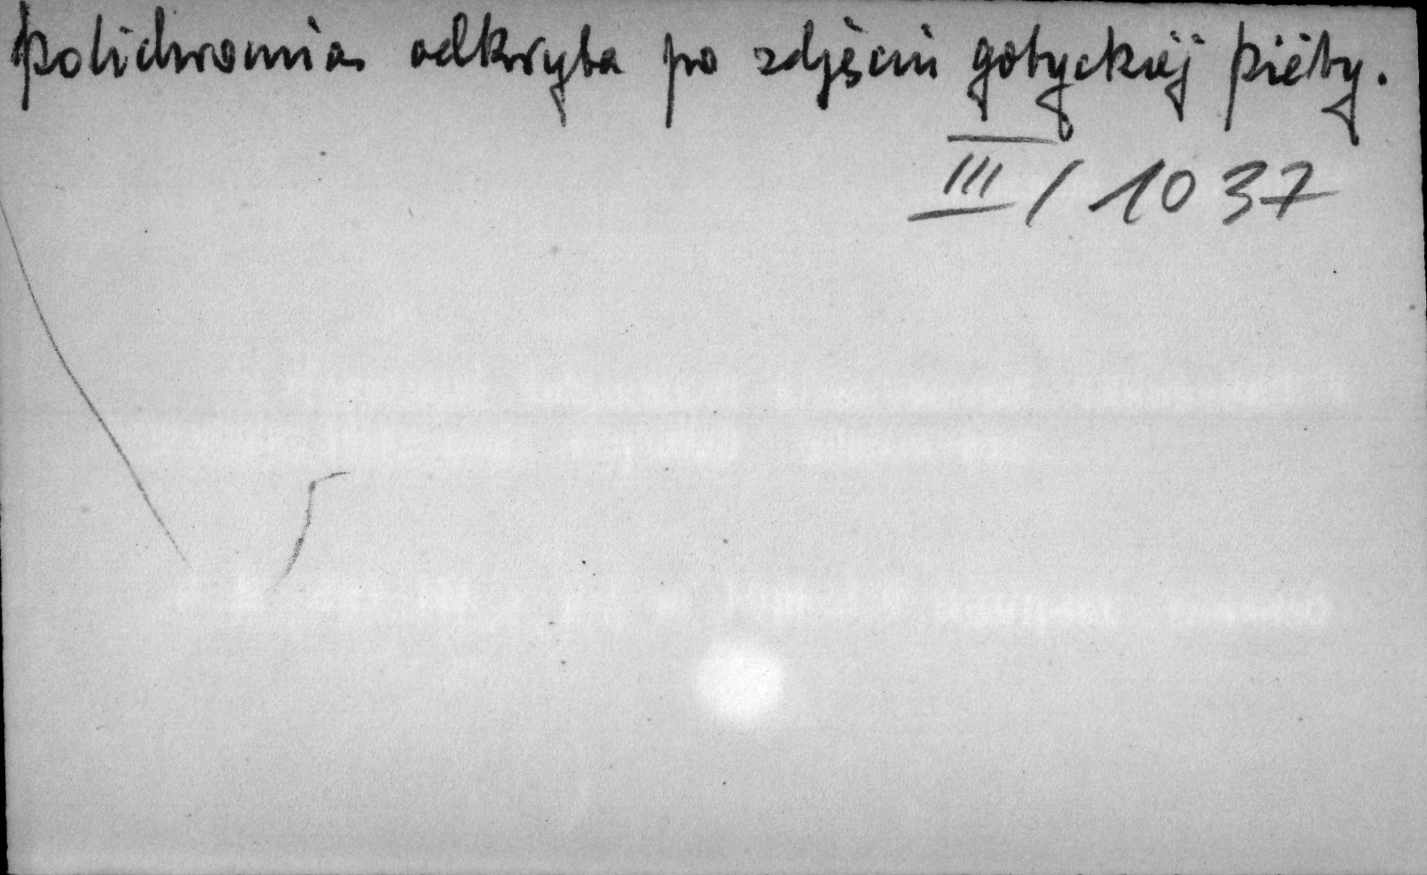 polichromia odkryta po zdjęciu gotyckiej piéty.
III / 1037